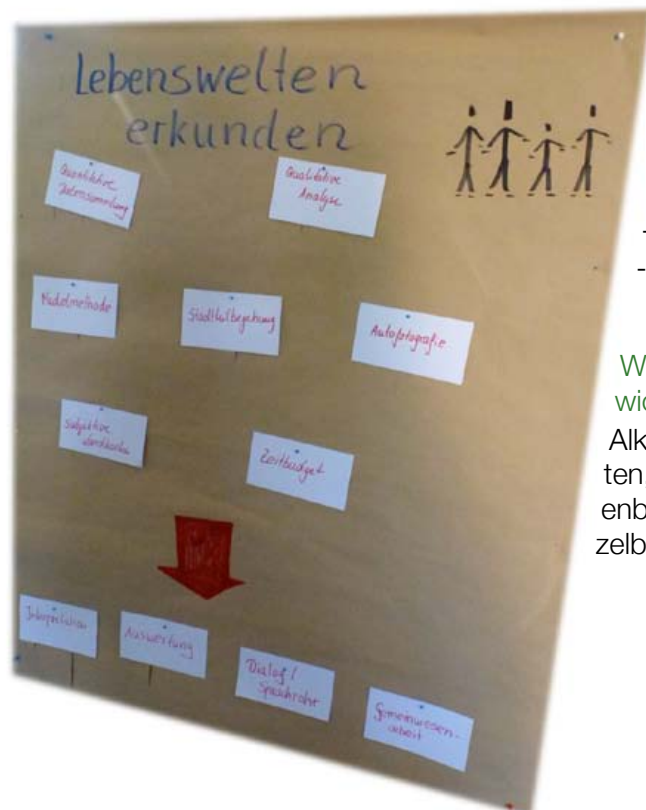 Lebenswelten
erkunden
Quantitative
Datensammlung
Qualitative
Analyse
Nadelmethode
Stadtteilbegehung
Autofotografie
Subjektive
Landkarten
Zeitbudget
Interpretation
Auswertung
Dialog /
Sprachrohr
Gemeinwesen-
arbeit
W
wic
Alk
ten,
enb
zelb